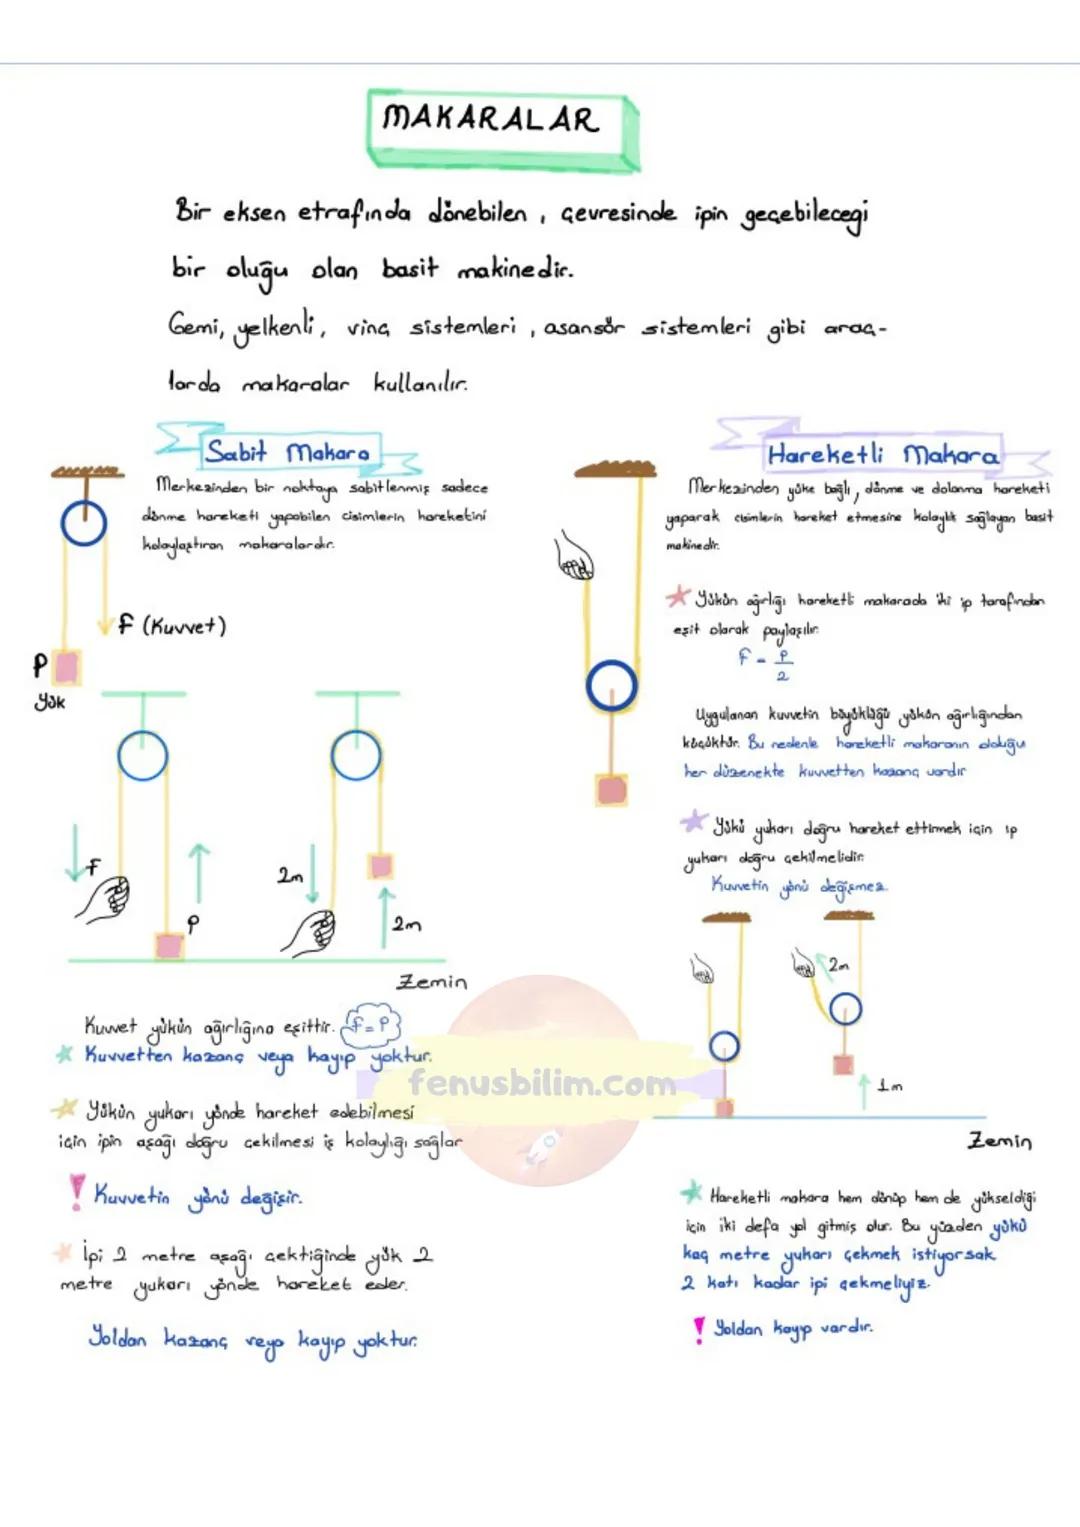 MAKARALAR
Bir eksen etrafında dönebilen, çevresinde ipin geçebileceği
bir oluğu olan basit makinedir.
Gemi, yelkenli, vinç sistemleri, asansör sistemleri gibi araç-
larda makaralar kullanılır.
Sabit Makara
Merkezinden bir noktaya sabitlenmiş sadece
dönme hareketi yapabilen cisimlerin hareketini
kolaylaştıran makaralardır.
F (Kuvvet)
P
Yük
F
P
2m
2m
Zemin
Kuvvet yükün ağırlığına eşittir. F=P
Kuvvetten kazanç veya kayıp yoktur.
Yükün yukarı yönde hareket edebilmesi
için ipin aşağı doğru çekilmesi iş kolaylığı sağlar
! Kuvvetin yönü değişir.
İpi 2 metre aşağı çektiğinde yük 2
metre yukarı yönde hareket eder.
Yoldan kazanç veya kayıp yoktur.
Hareketli Makara
Merkezinden yüke bağlı, dönme ve dolanma hareketi
yaparak cisimlerin hareket etmesine kolaylık sağlayan basit
makinedir.
Yükün ağırlığı hareketli makarada iki ip tarafından
eşit olarak paylaşılır.
F = P
2
Uygulanan kuvvetin büyüklüğü yükün ağırlığından
küçüktür. Bu nedenle hareketli makaranın olduğu
her düzenekte kuvvetten kazanç vardır
Yükü yukarı doğru hareket ettirmek için ip
yukarı doğru çekilmelidir.
Kuvvetin yönü değişmez.
2m
1m
Zemin
Hareketli makara hem dönüp hem de yükseldiği
için iki defa yol gitmiş olur. Bu yüzden yükü
kaç metre yukarı çekmek istiyorsak
2 katı kadar ipi çekmeliyiz.
! Yoldan kayıp vardır.
fenusbilim.com